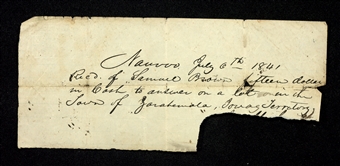 Nauvoo July 6th 1841
Recd. of Samuel Brown fifteen dollar
in Cash to answer on a lot in the
Town of Zarahemla, Iowa Territory